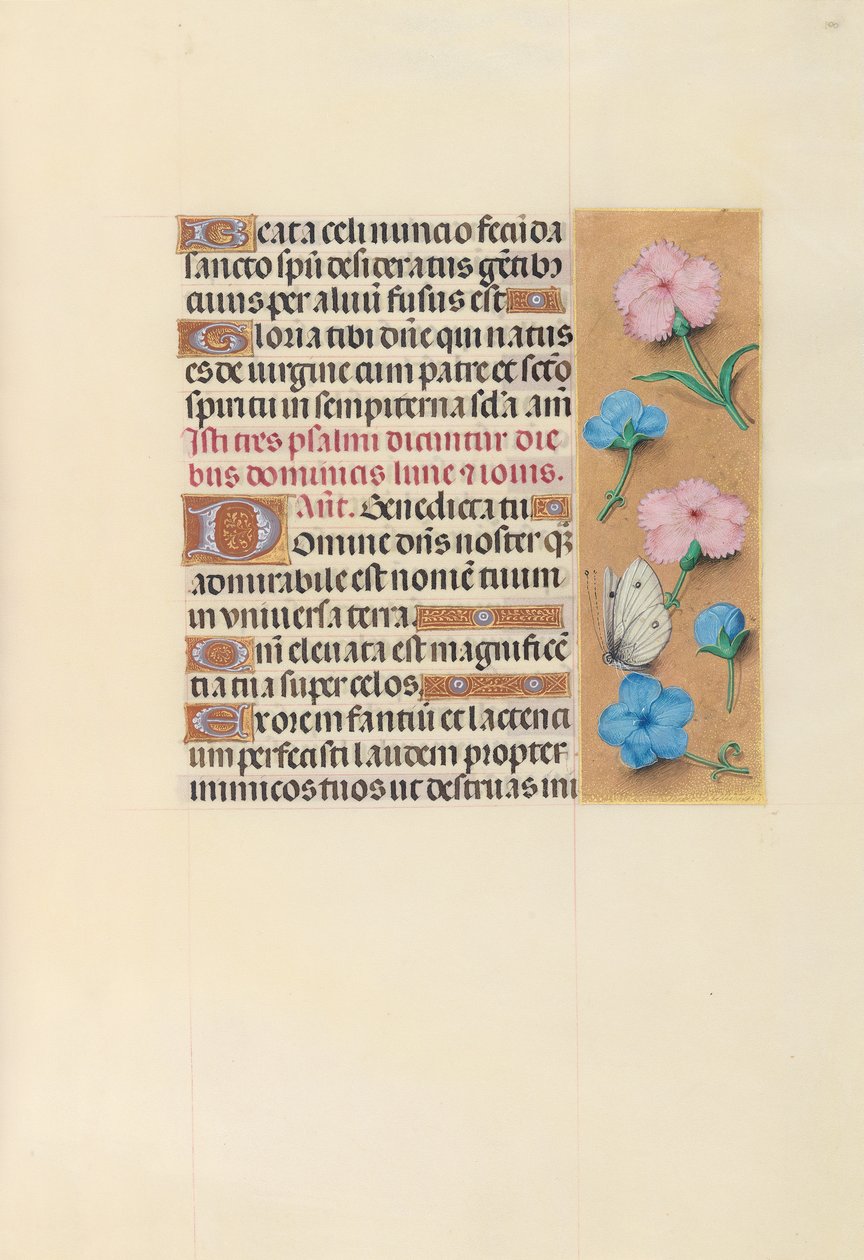 Beata celi nuncio fecūda
sancto spū desideratus gētibꝫ
cuius per aluū fusus est
Gloria tibi dn̄e qui natus
es de uirgine cum patre et sctō
spiritu in sempiterna scl̄a am̄
Isti tres psalmi dicuntur die
bus dominicis lune ⁊ iouis.
An̄t. Benedicta tu
Domine dn̄s noster qȝ
admirabile est nomē tuum
in vniuersa terra.
Qm̄ eleuata est magnificē
tia tua super celos.
Ex ore infantiū et lactenci
um perfecisti laudem propter
inimicos tuos ut destruas ini